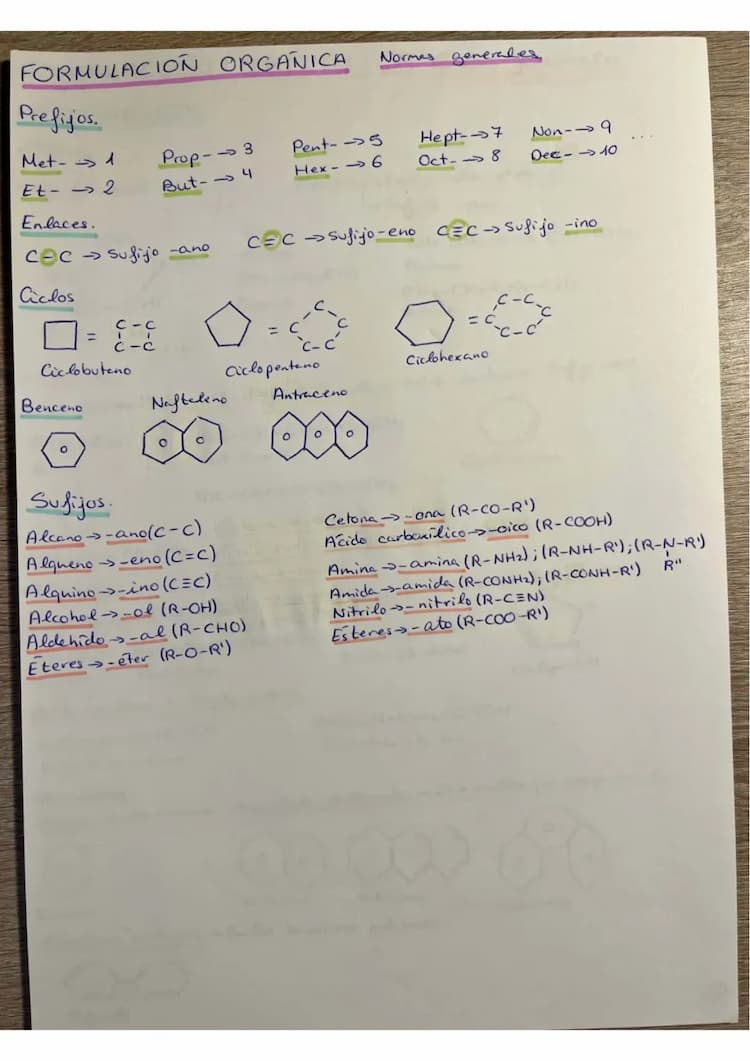 FORMULACIÓN ORGÁNICA Normas generales
Prefijos.
Met- → 1 Prop- → 3 Pent- → 5 Hept- → 7 Non- → 9 ...
Et- → 2 But- → 4 Hex- → 6 Oct- → 8 Dec- → 10
Enlaces.
C-C → sufijo -ano C=C → Sufijo -eno C≡C → sufijo -ino
Ciclos
= C-C C-C = C C C C-C = C-C C C C-C
Ciclobutano Ciclopentano Ciclohexano
Benceno Naftaleno Antraceno
Sufijos.
Alcano → -ano (C-C) Cetona → -ona (R-CO-R')
Alqueno → -eno (C=C) Ácido carboxílico → -oico (R-COOH)
Alquino → -ino (C≡C) Amina → -amina (R-NH2); (R-NH-R'); (R-N-R') R''
Alcohol → -ol (R-OH) Amida → -amida (R-CONH2); (R-CONH-R')
Aldehído → -al (R-CHO) Nitrilo → -nitrilo (R-C≡N)
Éteres → -éter (R-O-R') Ésteres → -ato (R-COO-R')